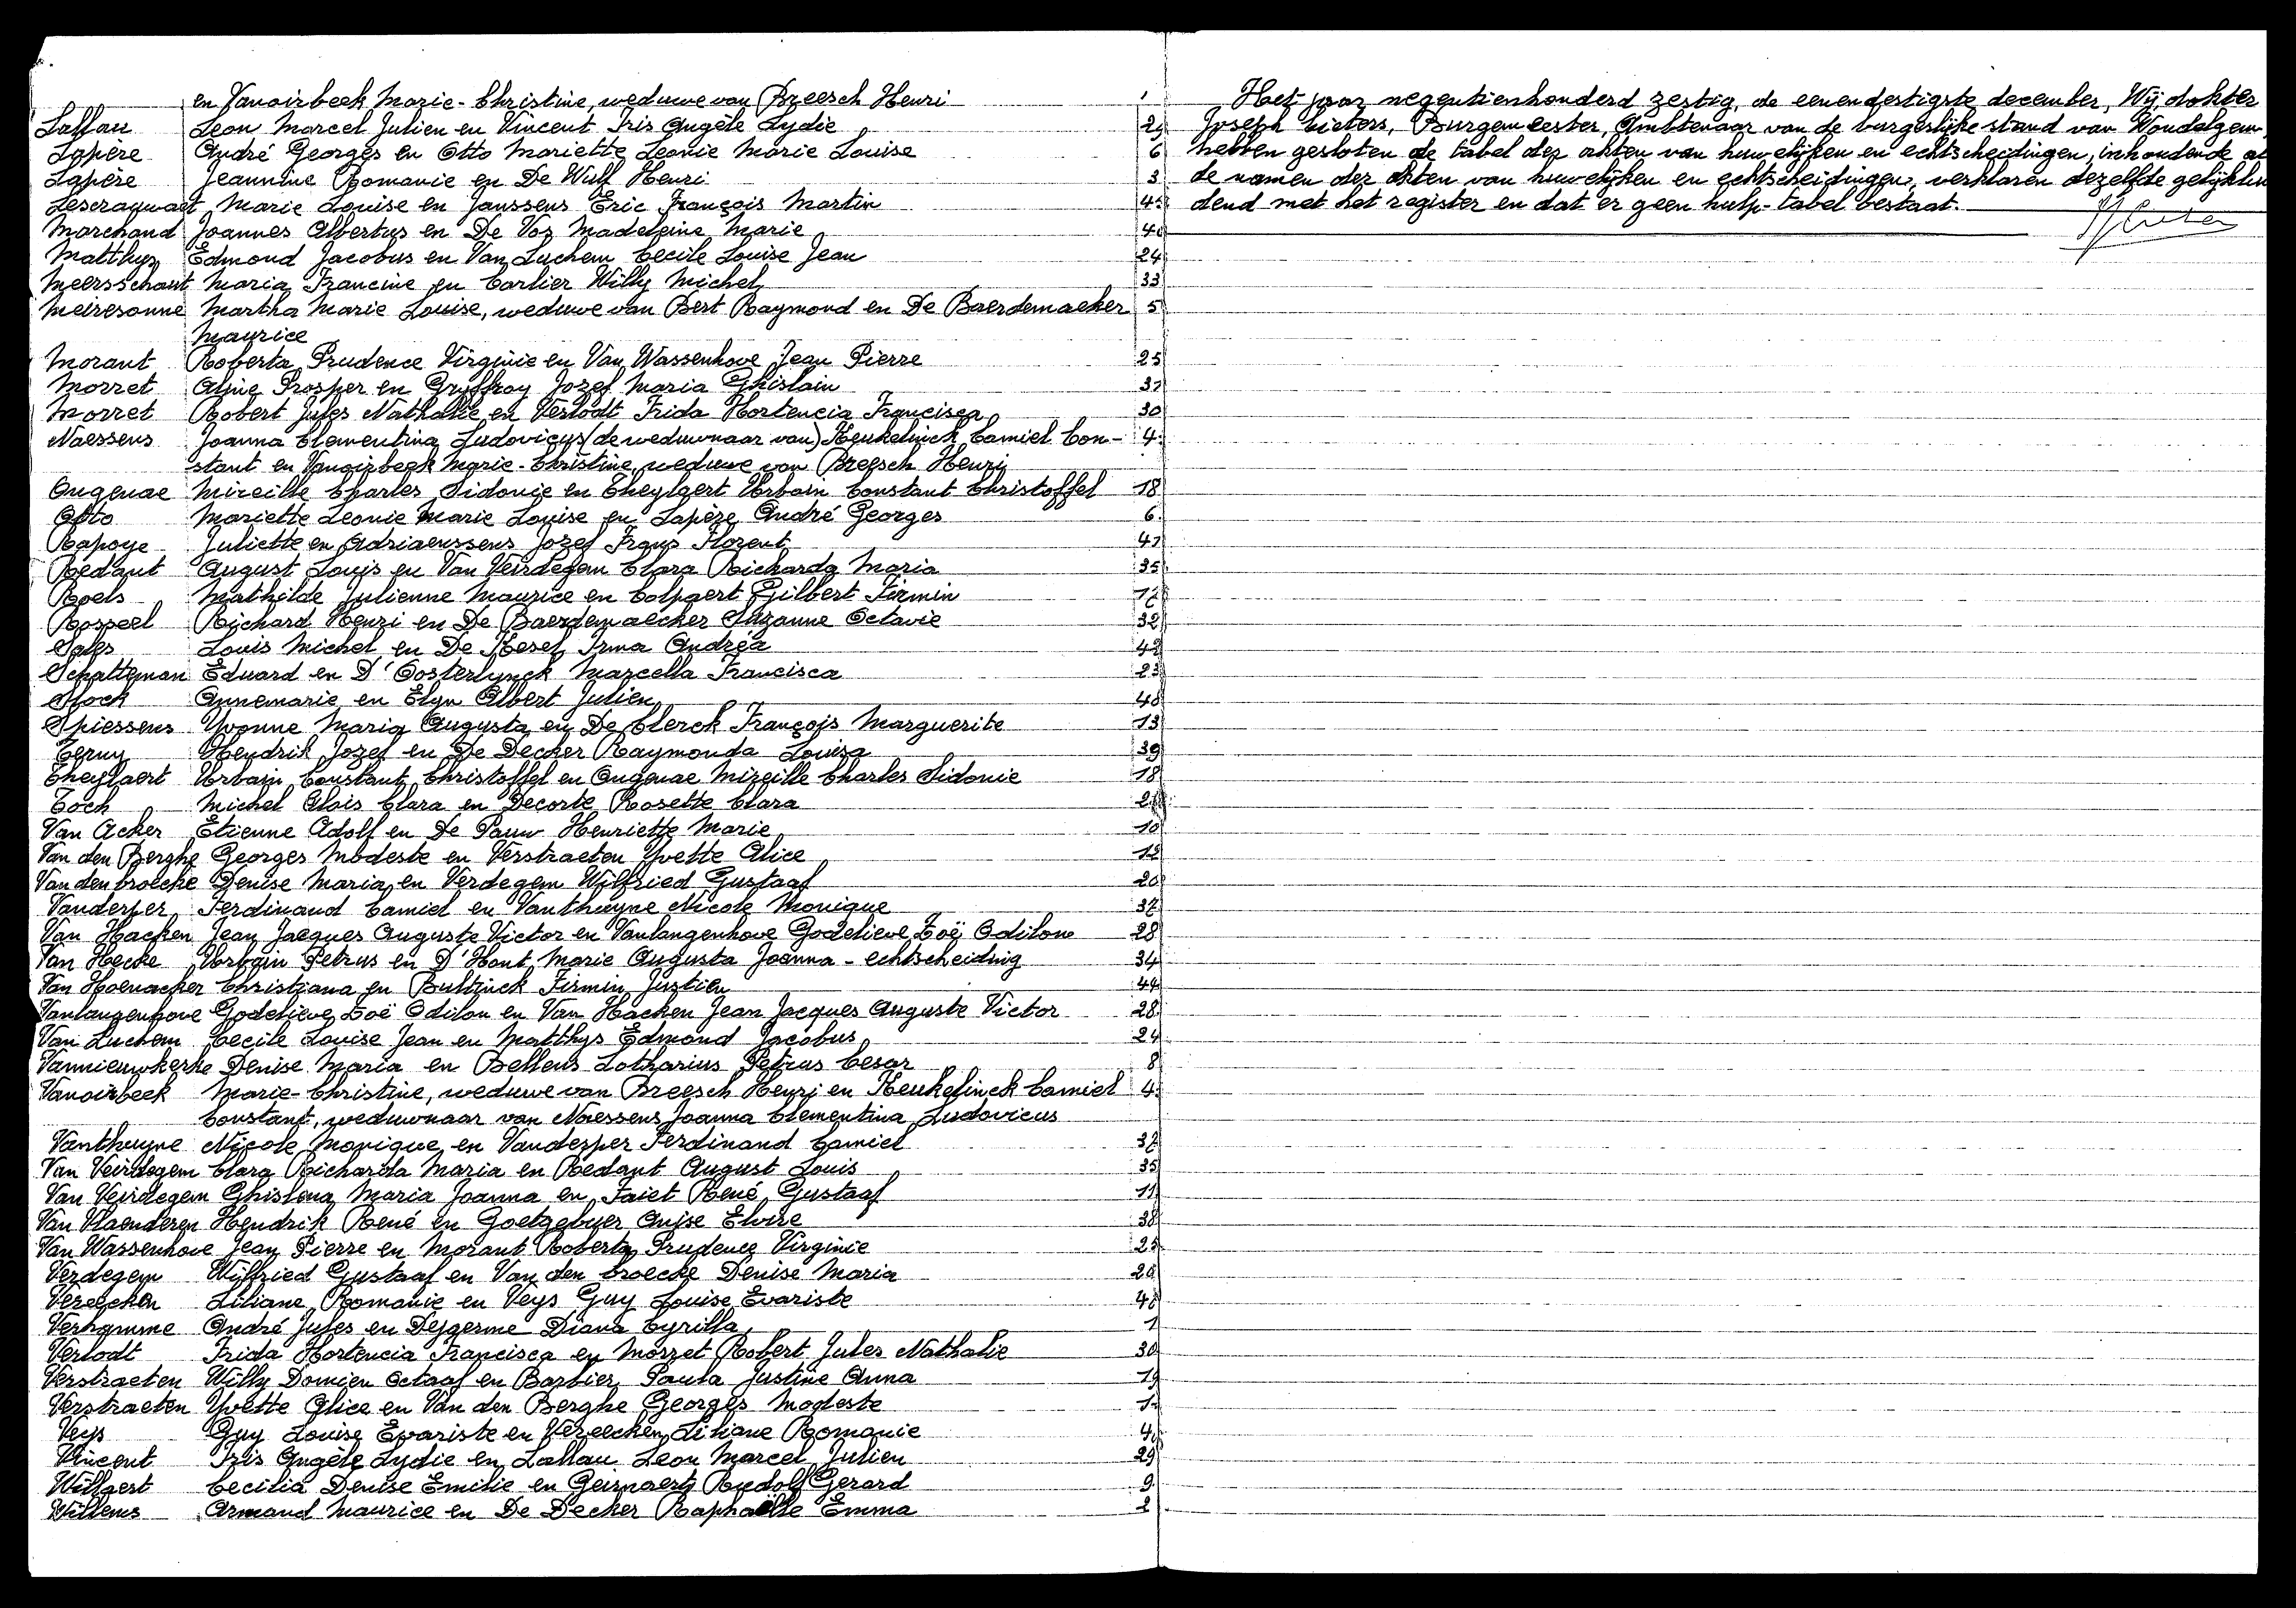 en Vanoirbeek Marie-Christine, weduwe van Breesch Henri
Lallau Leon Marcel Julien en Vincent Iris Angèle Lydie 29
Lapère André Georges en Otto Mariette Leonie Marie Louise 6
Lapère Jeannine Romanie en De Wulf Henri 3
Lescrauwaet Marie Louise en Janssens Eric François Martin
Marchand Joannes Albertus en De Vos Madeleine Marie
Matthys Edmond Jacobus en Van Luchem Cecile Louise Jean 24
Meersschaut Maria Francine en Carlier Willy Michel 33
Meiresonne Martha Marie Louise, weduwe van Bert Raymond en De Baerdemaeker 5
Maurice
Morant Roberta Prudence Virginie en Van Wassenhove Jean Pierre 25
Morret Aline Prosper en Gryffroy Jozef Maria Ghislain
Morret Robert Jules Nathalie en Verlodt Frida Hortencia Francisca 30
Naessens Joanna Clementina Ludovicus (de weduwnaar van) Keukelinck Camiel Con- 4
stant en Vanoirbeek Marie-Christine, weduwe van Breesch Henri
Ongenae Mireille Charles Sidonie en Theylaert Urbain Constant Christoffel 18
Otto Mariette Leonie Marie Louise en Lapère André Georges 6
Rapoye Juliette en Adriaenssens Jozef Frans Florent
Redant August Louis en Van Veirdegem Clara Richarda Maria 35
Roels Mathilde Julienne Maurice en Colpaert Gilbert Firmin
Rosseel Richard Henri en De Baerdemaecker Suzanne Octavie 32
Sales Louis Michel en De Kesel Irma Andréa 42
Schatteman Eduard en D'Oosterlynck Marcella Francisca 23
Slock Annemarie en Elyn Albert Julien
Spiessens Yvonne Maria Augusta en De Clerck François Marguerite 13
Hendrik Jozef en De Decker Raymonda Louisa 39
Theylaert Urbain Constant Christoffel en Ongenae Mireille Charles Sidonie 18
Toch Michel Alois Clara en Decorte Rosette Clara
Van Acker Etienne Adolf en De Pauw Henriette Marie 10
Van den Berghe Georges Modeste en Verstraeten Yvette Alice 12
Van den broecke Denise Maria en Verdegem Wilfried Gustaaf 20
Vanderper Ferdinand Camiel en Vanthuyne Nicole Monique 37
Van Hacken Jean Jacques Auguste Victor en Vanlangenhove Godelieve Zoë Odilone 28
Van Hecke Urbain Petrus en D'Hont Marie Augusta Joanna - echtscheiding 34
Van Hoenacker Christiana en Bultinck Firmin Justien 44
Vanlangenhove Godelieve Zoë Odilon en Van Hacken Jean Jacques Auguste Victor 28
Van Luchem Cecile Louise Jean en Matthys Edmond Jacobus 24
Vannieuwkerke Denise Maria en Bellens Lotharius Petrus Cesar 8
Vanoirbeek Marie-Christine, weduwe van Breesch Henri en Keukelinck Camiel 4
Constant, weduwnaar van Naessens Joanna Clementina Ludovicus
Vanthuyne Nicole Monique en Vanderper Ferdinand Camiel 37
Van Veirdegem Clara Richarda Maria en Redant August Louis 35
Van Veirdegem Ghislena Maria Joanna en Faiet René Gustaaf 11
Van Vlaenderen Hendrik René en Goetgebuer Anise Elvire 38
Van Wassenhove Jean Pierre en Morant Roberta Prudence Virginie 25
Verdegem Wilfried Gustaaf en Van den broecke Denise Maria 20
Vereecken Liliane Romanie en Veys Guy Louise Evariste
Verhamme André Jules en Dejgerme Diana Cyrilla 1
Verlodt Frida Hortencia Francisca en Morret Robert Jules Nathalie 30
Verstraeten Willy Domien Octaaf en Barbier Paula Justine Anna 19
Verstraeten Yvette Alice en Van den Berghe Georges Modeste
Veys Guy Louise Evariste en Vereecken Liliane Romanie
Vincent Iris Angèle Lydie en Lallau Leon Marcel Julien 29
Willaert Cecilia Denise Emilie en Geirnaert Rudolf Gerard 9
Willems Armand Maurice en De Decker Raphaëlle Emma 2
Het jaar negentienhonderd zestig, de eenendertigste december, Wij, dokter
Joseph Burgemeester, Ambtenaar van de burgerlijke stand van Wondelgem
hebben gesloten de tabel der akten van huwelijken en echtscheidingen, inhoudende al
de namen der akten van huwelijken en echtscheidingen, verklaren dezelfde gelijklui
dend met het register en dat er geen hulp-tabel bestaat.